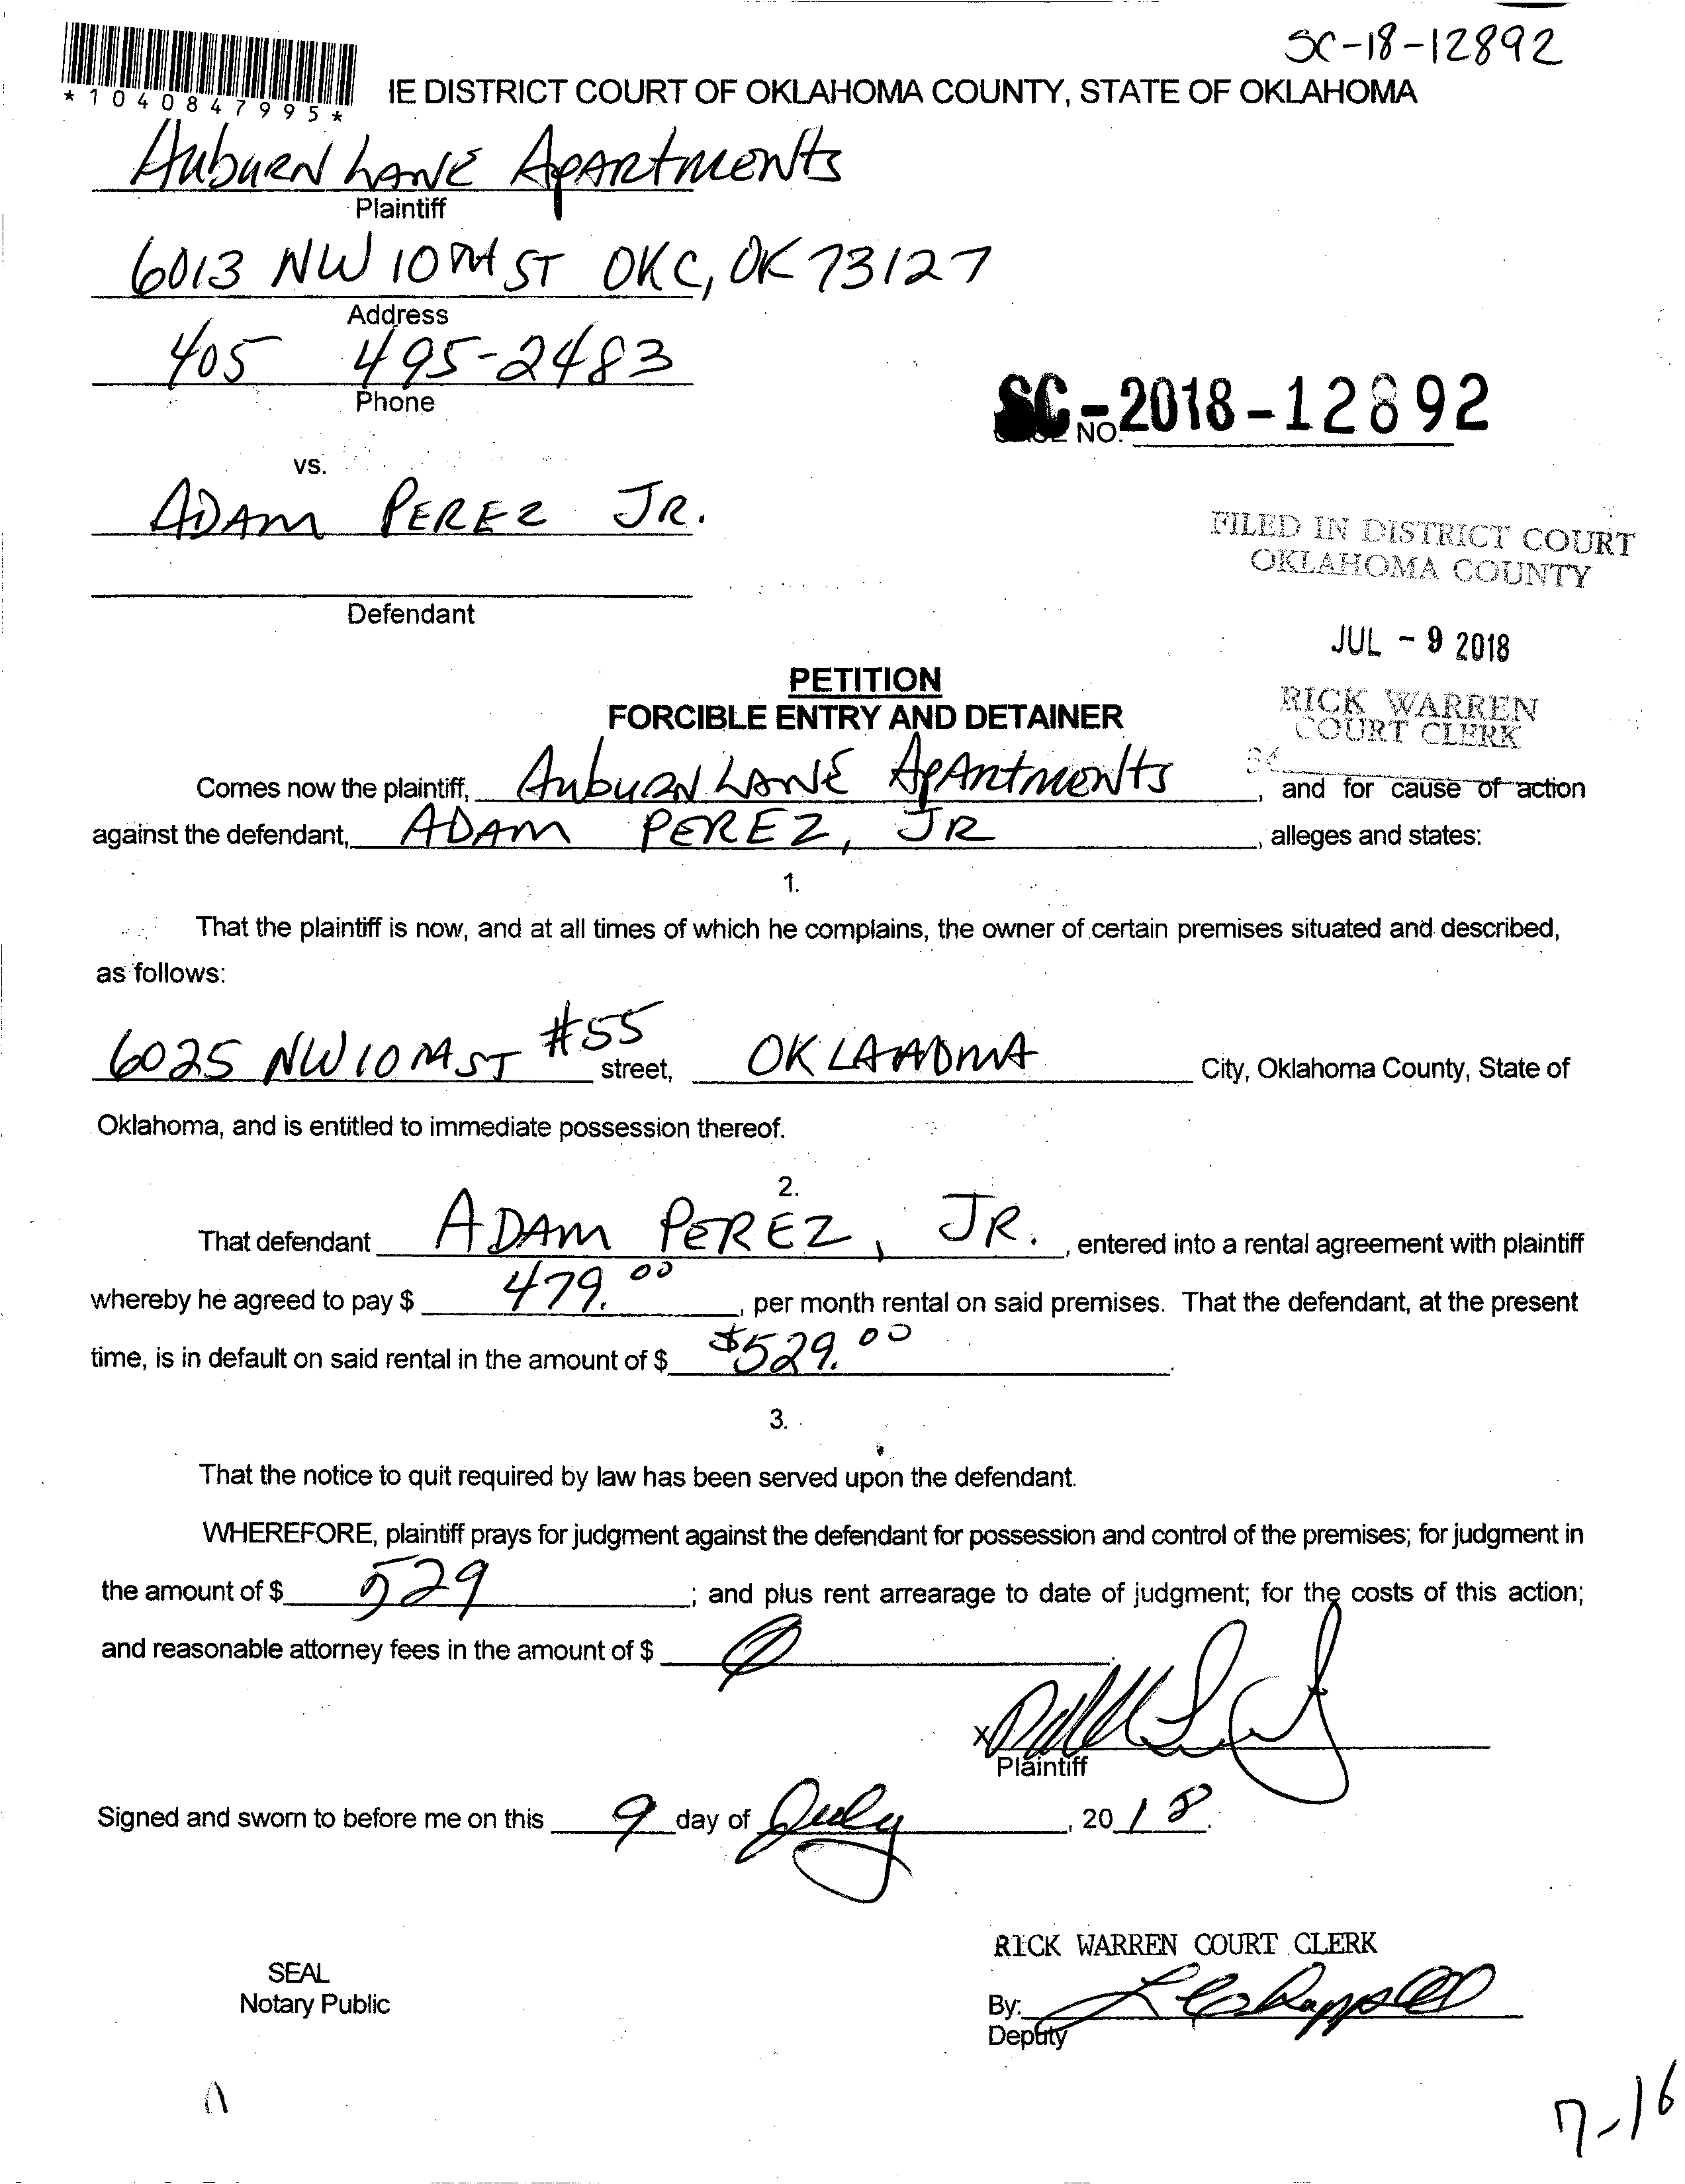 SC-18-12892
*1040847995*
IE DISTRICT COURT OF OKLAHOMA COUNTY, STATE OF OKLAHOMA
Auburn Lane Apartments
Plaintiff
6013 NW 10th ST OKC, OK 73127
Address
405 495-2483
Phone
SC-2018-12892
NO.
vs.
ADAM PEREZ JR.
FILED IN DISTRICT COURT
OKLAHOMA COUNTY
Defendant
JUL - 9 2018
PETITION
RICK WARREN
COURT CLERK
FORCIBLE ENTRY AND DETAINER
Comes now the plaintiff, Auburn Lane Apartments, and for cause of action
against the defendant, ADAM PEREZ, JR, alleges and states:
1.
That the plaintiff is now, and at all times of which he complains, the owner of certain premises situated and described,
as follows:
6025 NW 10th ST #55 street, OKLAHOMA City, Oklahoma County, State of
Oklahoma, and is entitled to immediate possession thereof.
2.
That defendant ADAM PEREZ, JR., entered into a rental agreement with plaintiff
whereby he agreed to pay $ 479.00, per month rental on said premises. That the defendant, at the present
time, is in default on said rental in the amount of $ $529.00.
3.
That the notice to quit required by law has been served upon the defendant.
WHEREFORE, plaintiff prays for judgment against the defendant for possession and control of the premises; for judgment in
the amount of $ 529; and plus rent arrearage to date of judgment; for the costs of this action;
and reasonable attorney fees in the amount of $ 0.
X
Plaintiff
Signed and sworn to before me on this 9 day of July, 2018.
RICK WARREN COURT CLERK
SEAL
Notary Public
By:
Deputy
7-16